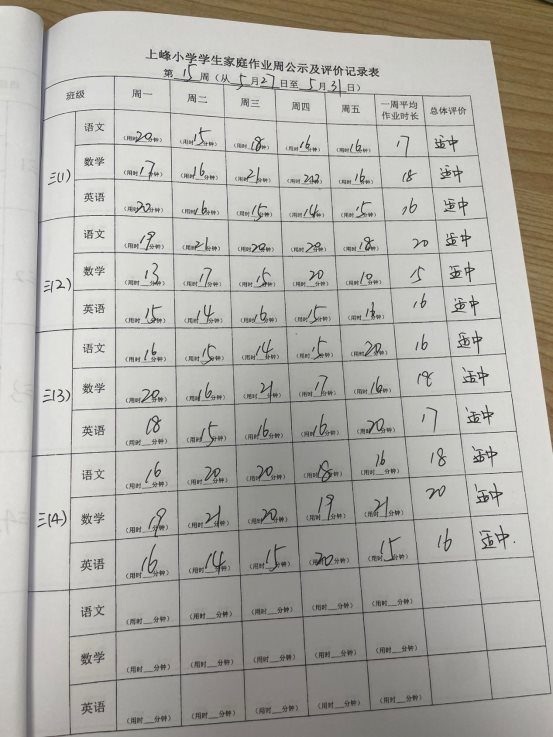 上峰小学学生家庭作业周公示及评价记录表
第 15 周（从 5 月 27 日至 5 月 31 日）
班级 周一 周二 周三 周四 周五 一周平均作业时长 总体评价
三(1) 语文 （用时20分钟） （用时15分钟） （用时18分钟） （用时16分钟） （用时16分钟） 17 适中
数学 （用时17分钟） （用时16分钟） （用时21分钟） （用时 分钟） （用时16分钟） 18 适中
英语 （用时22分钟） （用时16分钟） （用时15分钟） （用时14分钟） （用时15分钟） 16 适中
三(2) 语文 （用时19分钟） （用时21分钟） （用时20分钟） （用时20分钟） （用时18分钟） 20 适中
数学 （用时13分钟） （用时17分钟） （用时15分钟） （用时20分钟） （用时10分钟） 15 适中
英语 （用时15分钟） （用时14分钟） （用时16分钟） （用时15分钟） （用时 分钟） 16 适中
三(3) 语文 （用时16分钟） （用时15分钟） （用时14分钟） （用时15分钟） （用时20分钟） 16 适中
数学 （用时20分钟） （用时16分钟） （用时21分钟） （用时17分钟） （用时16分钟） 18 适中
英语 （用时18分钟） （用时15分钟） （用时16分钟） （用时16分钟） （用时20分钟） 17 适中
三(4) 语文 （用时16分钟） （用时20分钟） （用时20分钟） （用时18分钟） （用时16分钟） 18 适中
数学 （用时19分钟） （用时21分钟） （用时20分钟） （用时19分钟） （用时21分钟） 20 适中
英语 （用时16分钟） （用时14分钟） （用时15分钟） （用时20分钟） （用时15分钟） 16 适中.
语文 （用时__分钟） （用时__分钟） （用时__分钟） （用时__分钟） （用时__分钟）
数学 （用时__分钟） （用时__分钟） （用时__分钟） （用时__分钟） （用时__分钟）
英语 （用时__分钟） （用时__分钟） （用时__分钟） （用时__分钟） （用时__分钟）